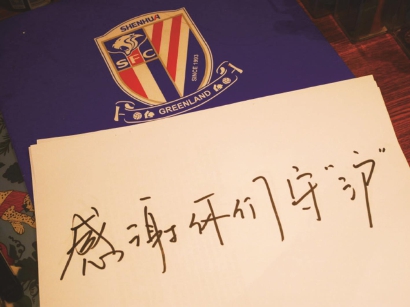 SHENHUA
SFC
SINCE 1993
GREENLAND
感谢你们守“沪”